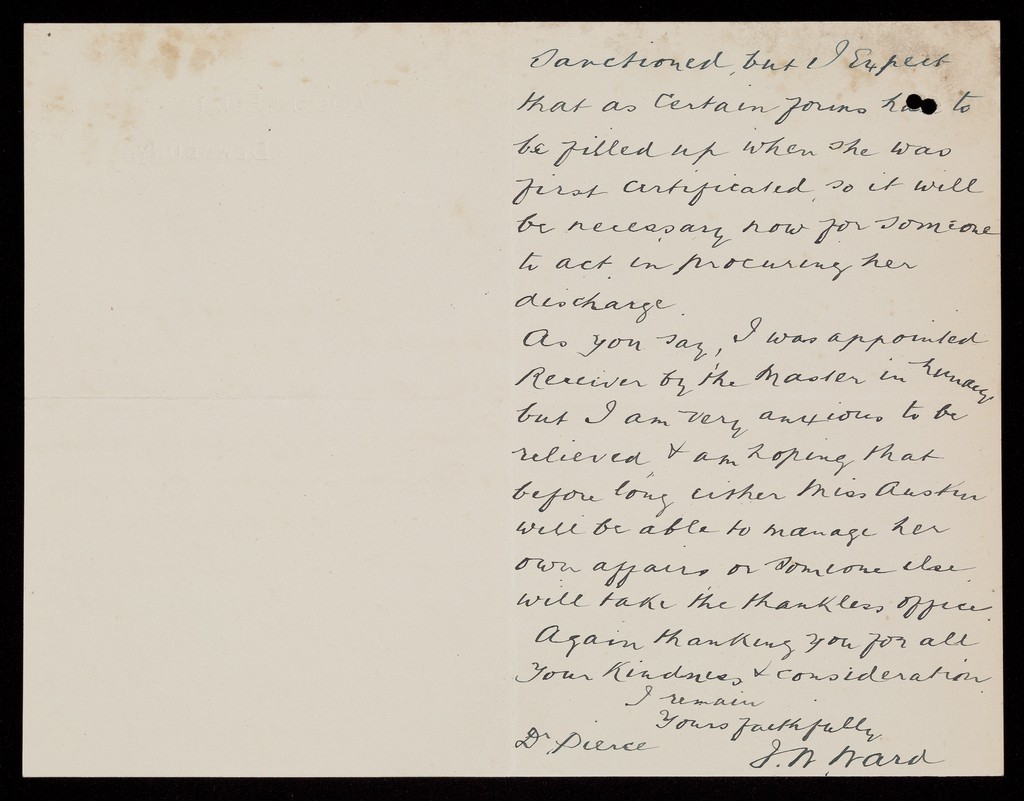 Sanctioned, but I Expect
that as Certain forms had to
be filled up when she was
first certificated, so it will
be necessary now for someone
to act in procuring her
discharge.
As you say, I was appointed
Receiver by the Master in Lunacy,
but I am very anxious to be
relieved, & am hoping that
before long either Miss Austin
will be able to manage her
own affairs or someone else
will take the thankless office.
Again thanking you for all
your kindness & consideration
I remain
Yours faithfully
J. W. Ward
Dr. Pierce